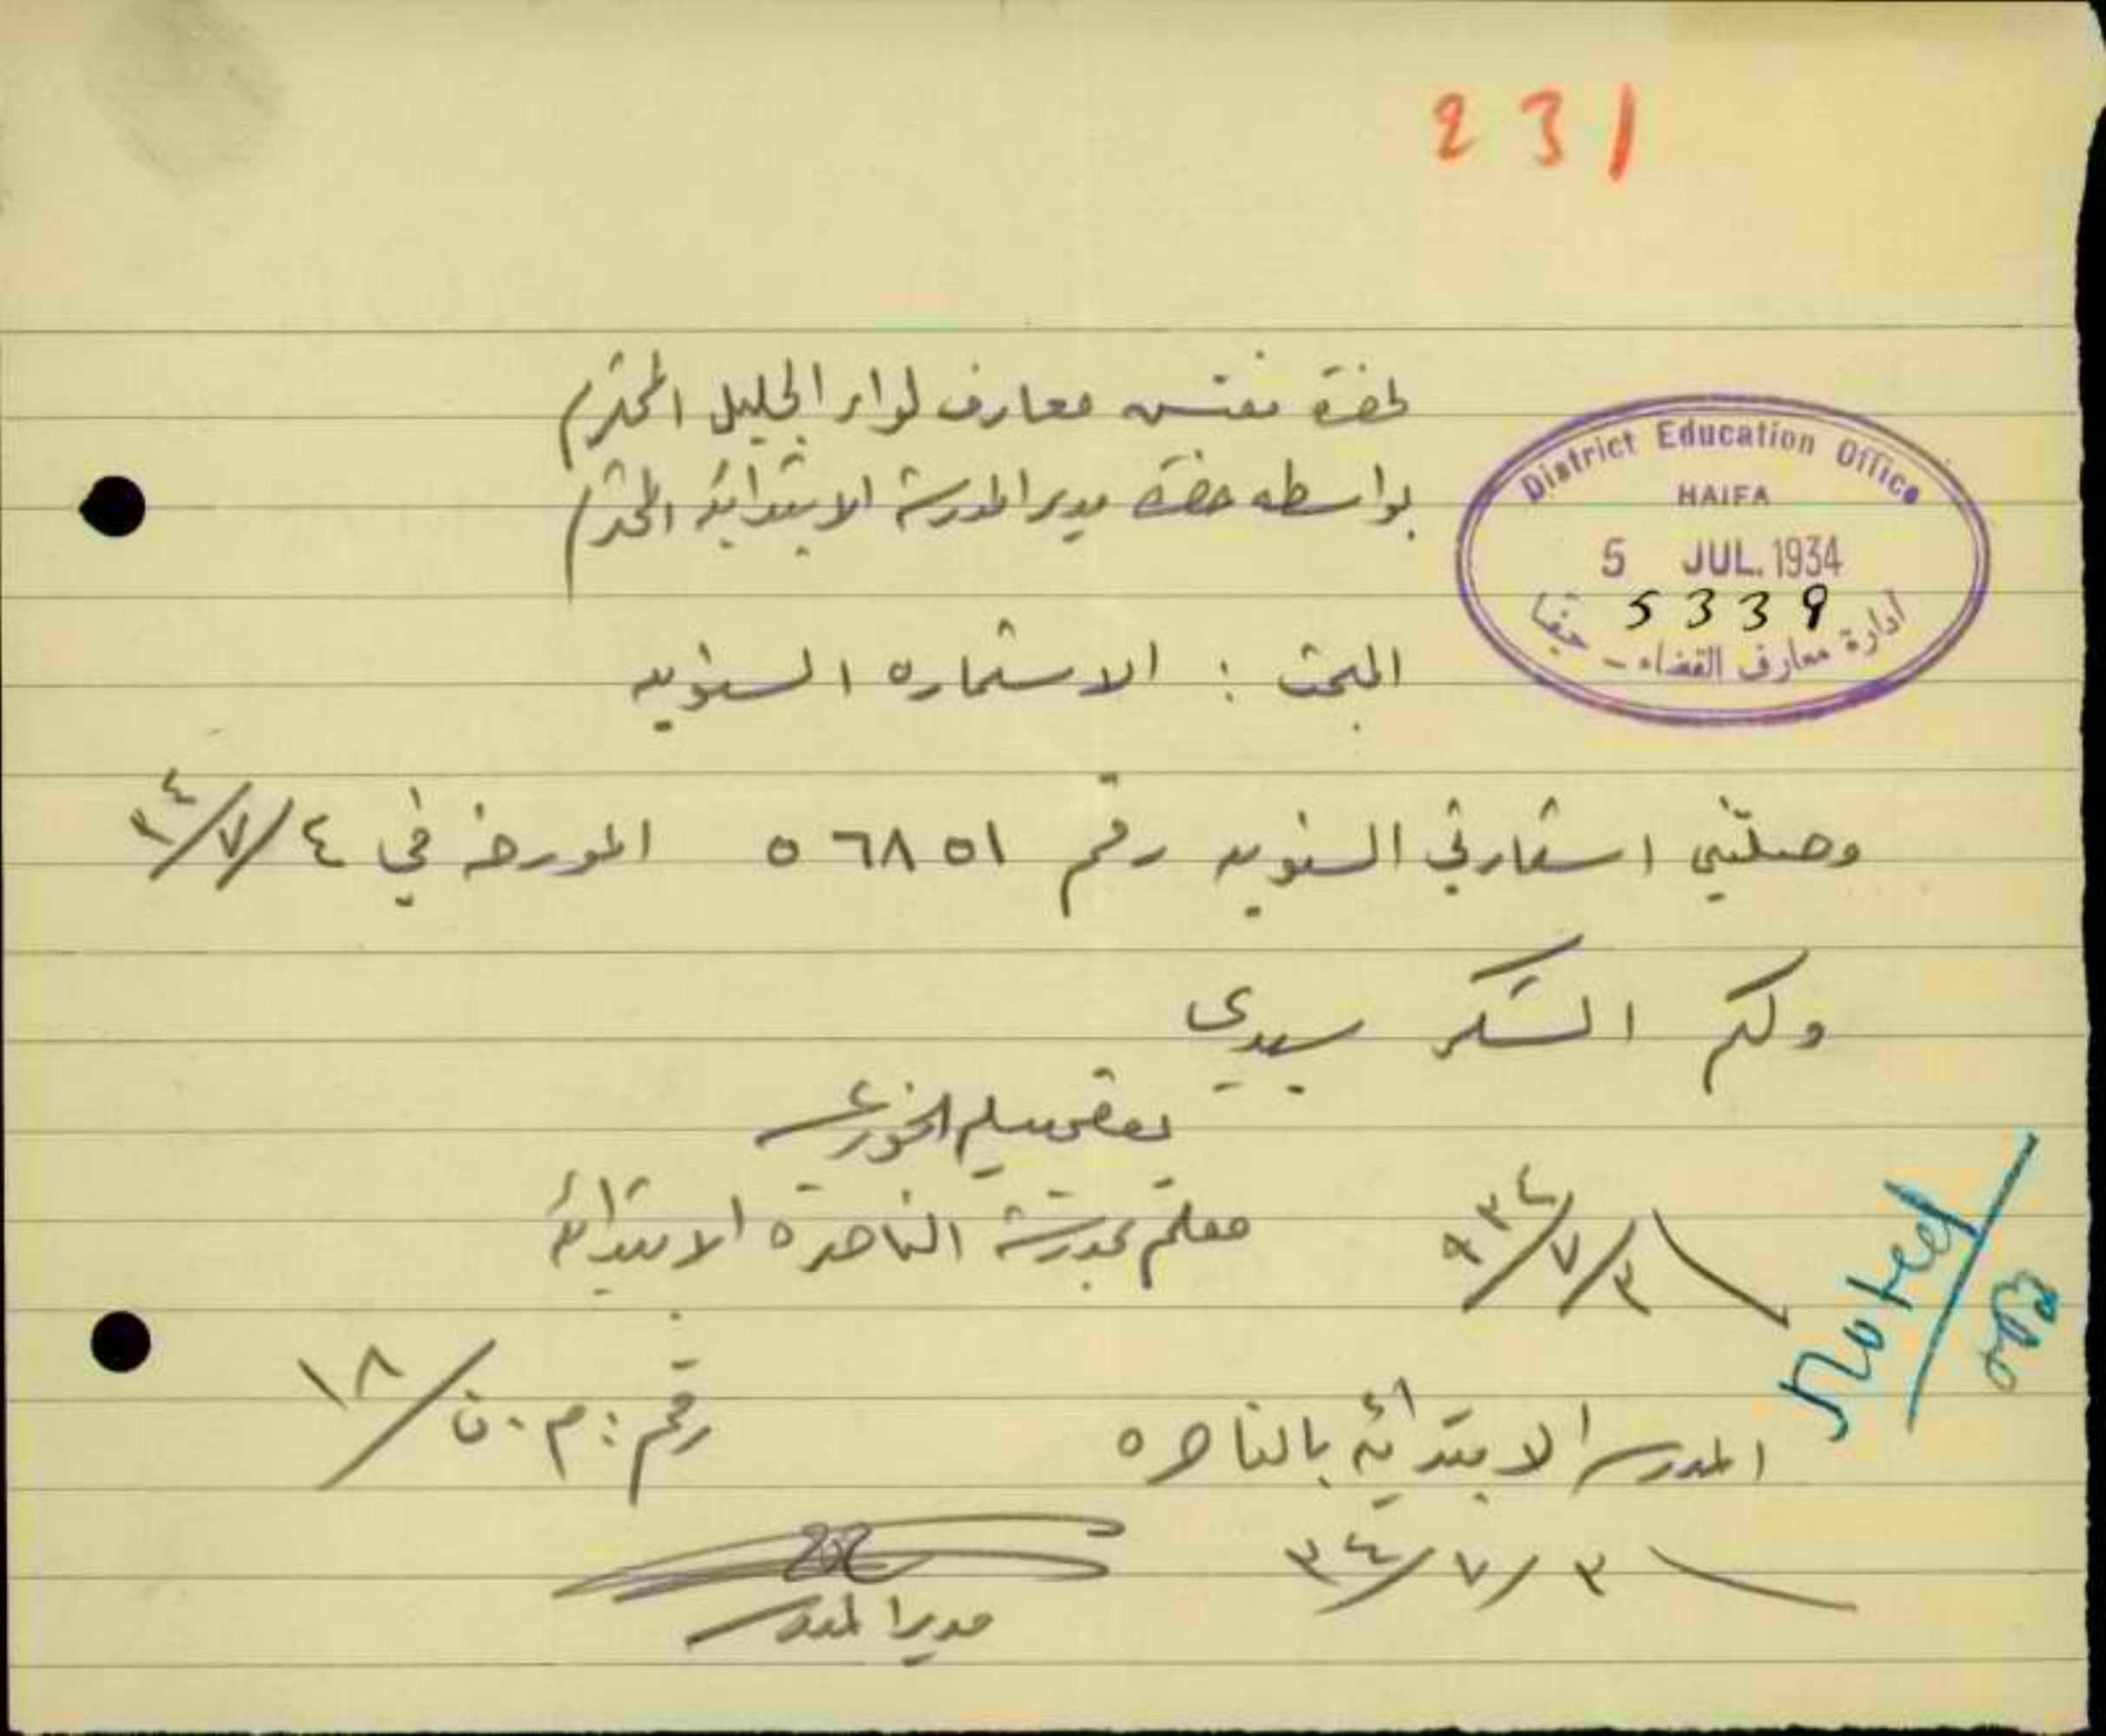 231
لحضرة مفتش معارف لواء الجليل المحترم
بواسطه حضرة مدير المدرسة الابتدائية المحترم
District Education Office
HAIFA
5 JUL. 1934
5339
ادارة معارف القضاء - حيفا
المبحث : الاستماره السنويه
وصلتني استمارتي السنويه رقم ٥٦٨٥١ المورخة في ٤/٧/٣٤
ولكم الشكر سيدي
سليم الخوري
معلم بمدرسة الناصرة الابتدائية
٣/٧/٩٣٤
Noted
المدرسة الابتدائية بالناصره
رقم : م . ن / ١٨
٣/٧/٣٤
مدير المدرسة